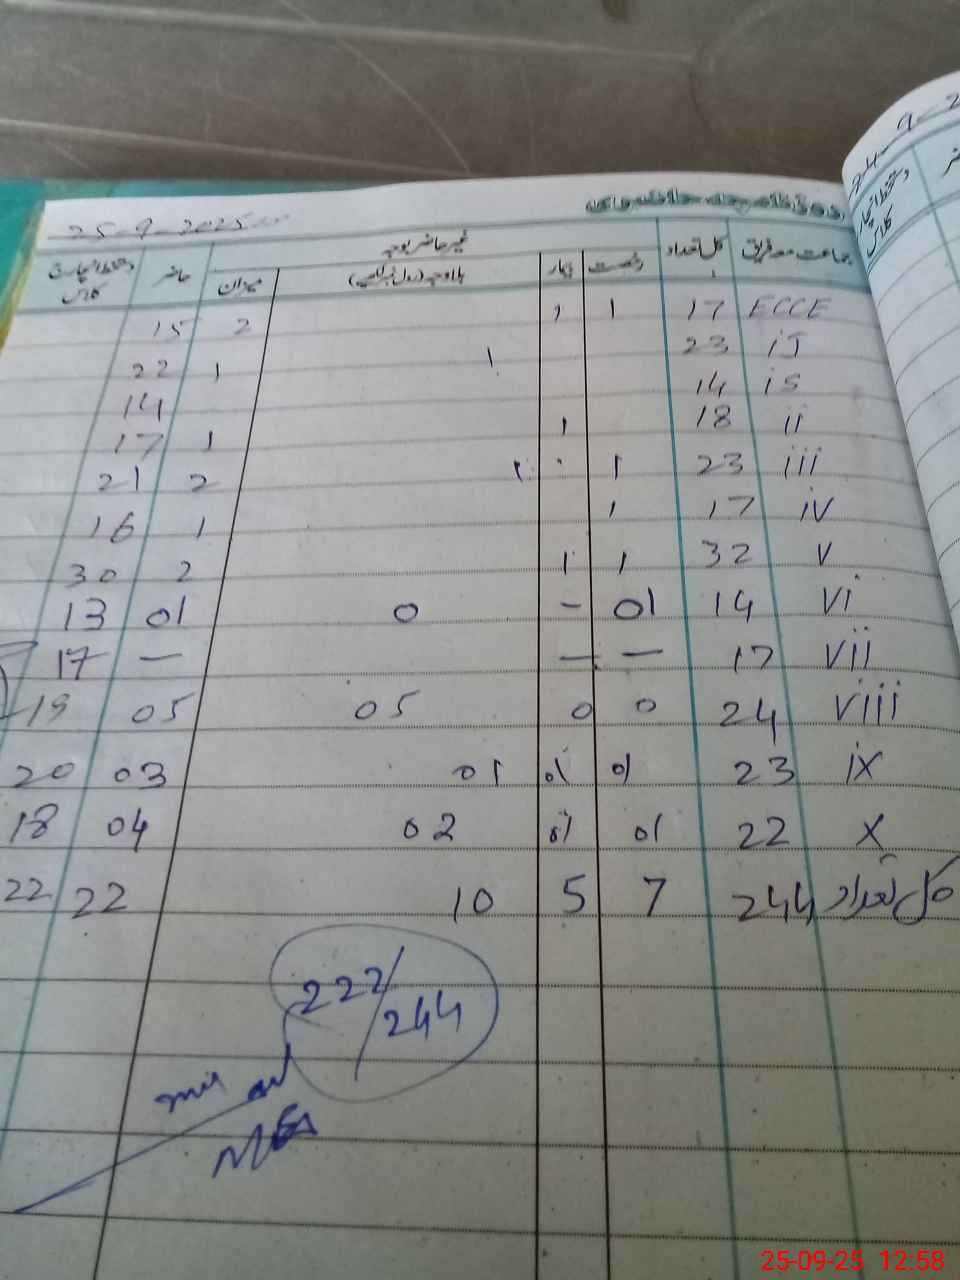 25-9-2025
روزنامچہ حاضری
جماعت معہ فریق کل تعداد غیر حاضر بوجہ حاضر دستخط انچارج کلاس
رخصت بیمار بلاوجہ (رول نمبر لکھیں) میزان
ECCE 17 1 1 2 15
iJ 23 1 1 22
iS 14 14
ii 18 1 1 17
iii 23 1 1 2 21
iv 17 1 1 16
v 32 1 1 2 30
vi 14 01 - 0 01 13
vii 17 — — — 17
viii 24 0 0 05 05 19
ix 23 01 01 01 03 20
x 22 01 01 02 04 18
کل تعداد 244 7 5 10 22 22
222/244
دستخط انچارج کلاس
25-09-25 12:58